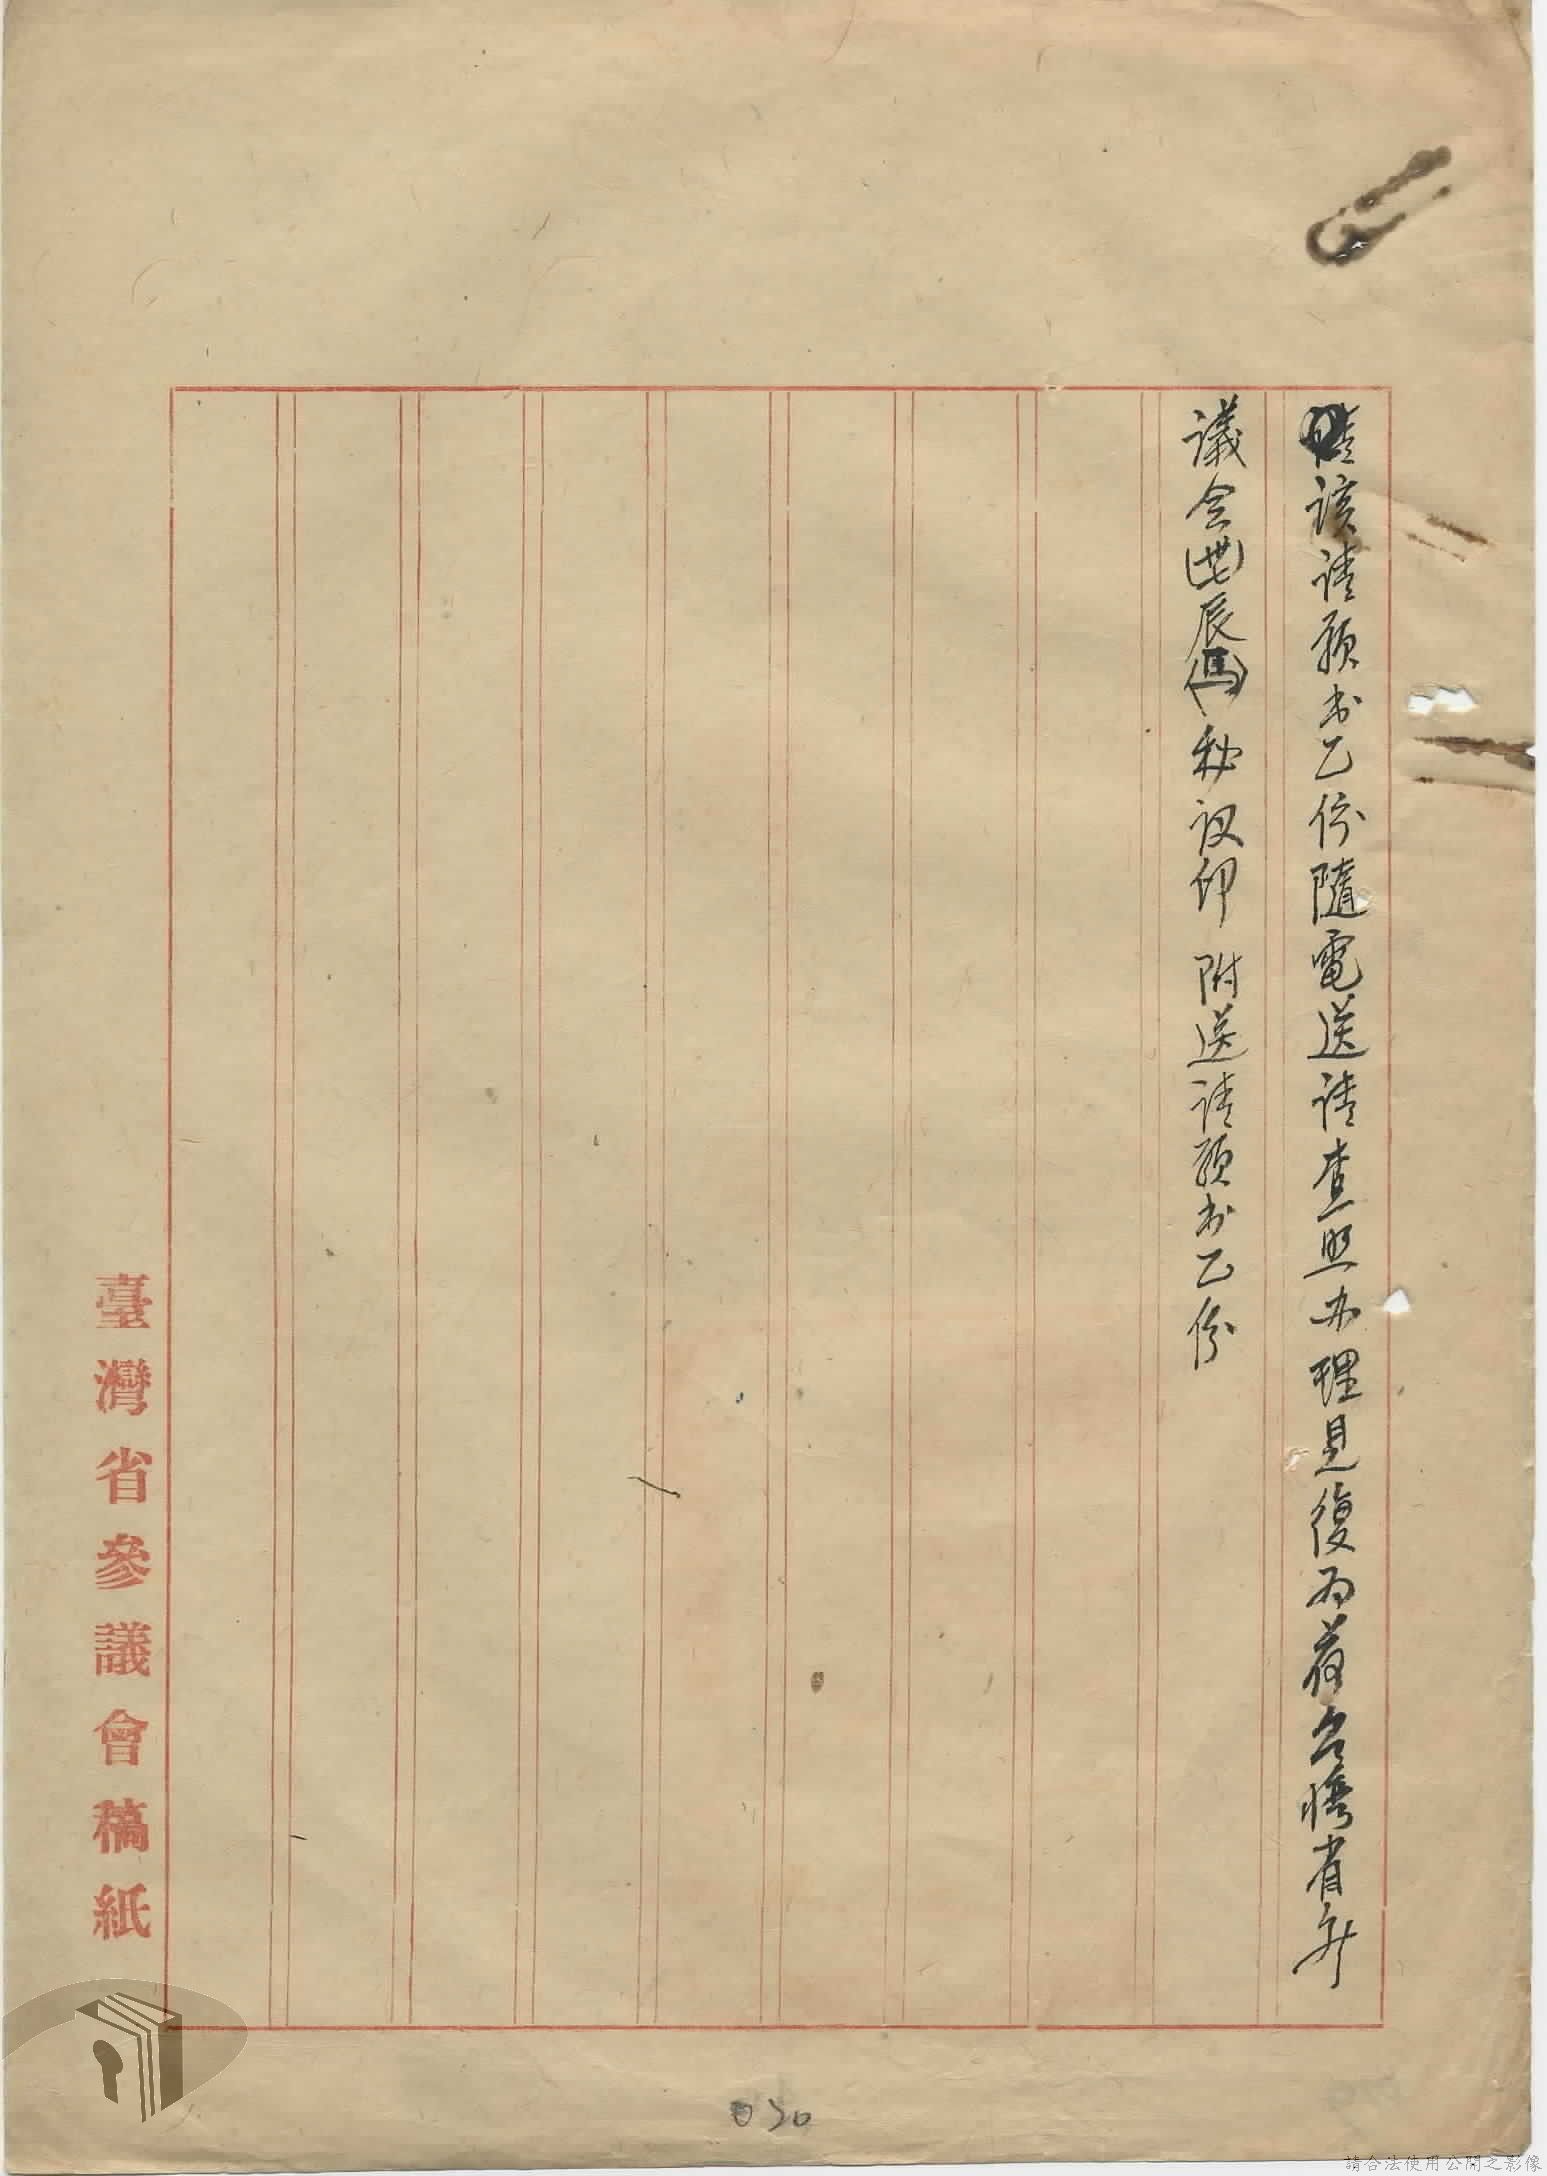 該請願书乙份隨電送請查照办理見復为荷台灣省參
議会(卅七)辰(馬)秘议印　附送請願书乙份
臺灣省參議會稿紙
030
請合法使用公開之影像